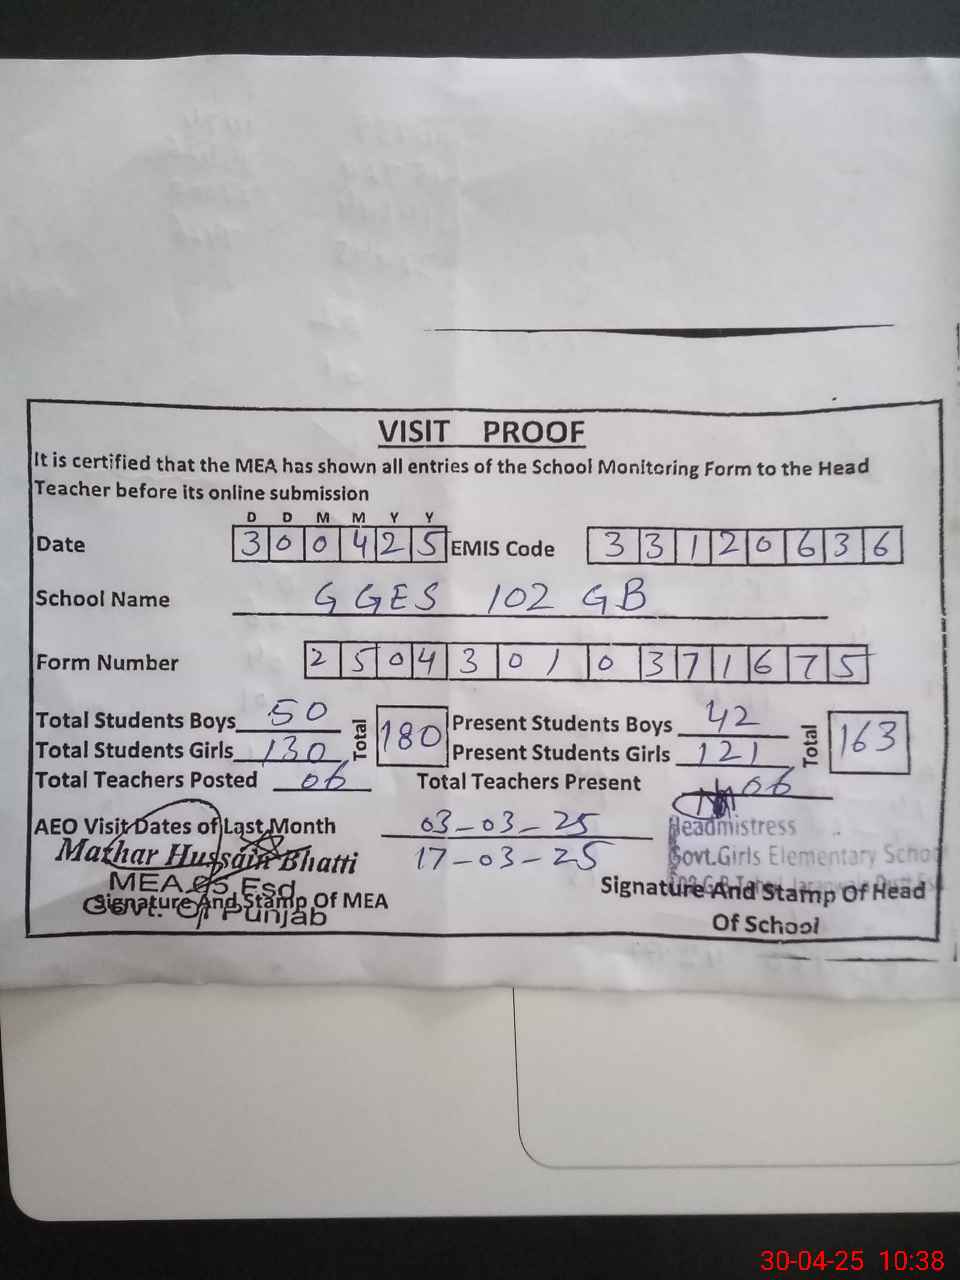 VISIT PROOF
It is certified that the MEA has shown all entries of the School Monitoring Form to the Head
Teacher before its online submission
D D M M Y Y
Date 3 0 0 4 2 5 EMIS Code 3 3 1 2 0 6 3 6
School Name G GES 102 GB
Form Number 2 5 0 4 3 0 1 0 3 7 1 6 7 5
Total Students Boys 50 Total 180 Present Students Boys 42 Total 163
Total Students Girls 130 Present Students Girls 121
Total Teachers Posted 06 Total Teachers Present 06
AEO Visit Dates of Last Month 03-03-25 Headmistress
Mazhar Hussain Bhatti 17-03-25 Govt.Girls Elementary Schoo
MEA 05 Fsd
Signature And Stamp Of MEA Signature And Stamp Of Head
Govt. Of Punjab Of School
30-04-25 10:38